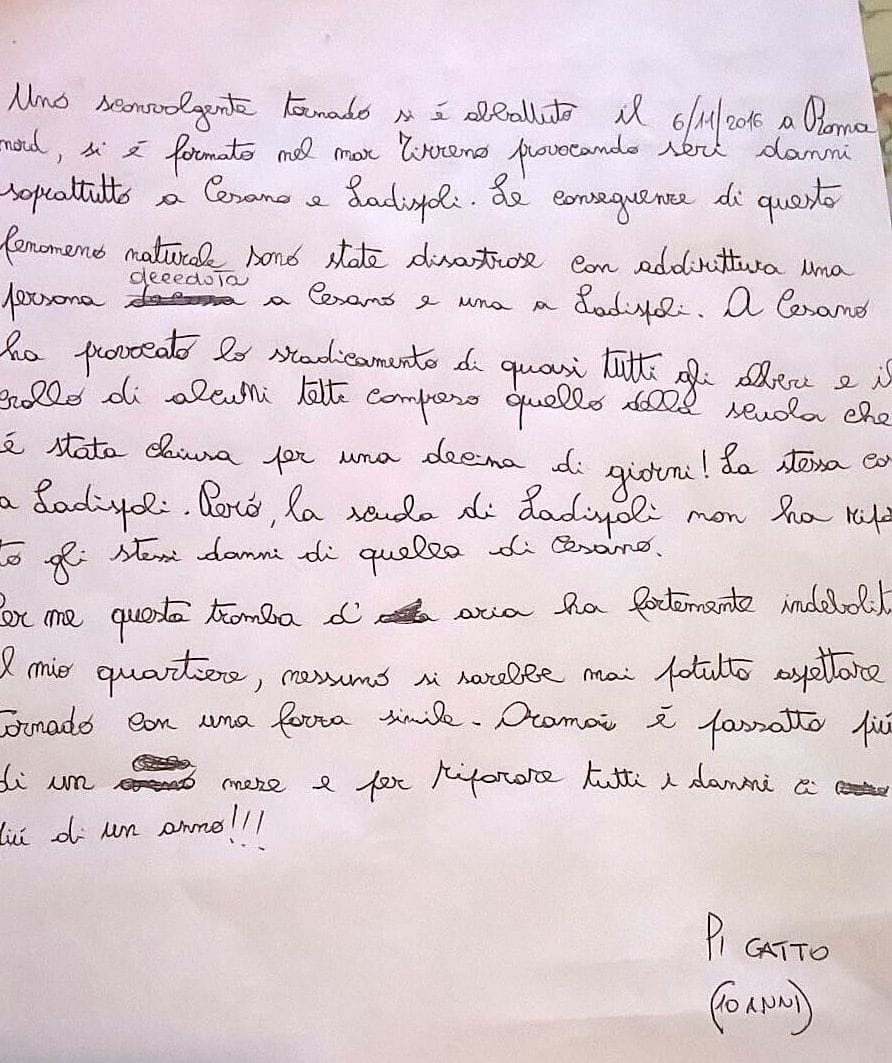 Uno sconvolgente tornado si è abbattuto il 6/11/2016 a Roma
nord, si è formato nel mar Tirreno provocando seri danni
soprattutto a Cesano e Ladispoli. Le conseguenze di questo
fenomeno naturale sono state disastrose con addirittura una
persona deceduta a Cesano e una a Ladispoli. A Cesano
ha provocato lo sradicamento di quasi tutti gli alberi e il
crollo di alcuni tetti compreso quello della scuola che
é stata chiusa per una decina di giorni! La stessa co
a Ladispoli. Peró, la scuola di Ladispoli non ha ripo
to gli stessi danni di quella di Cesano.
Per me questa tromba d' aria ha fortemente indebolit
il mio quartiere, nessuno si sarebbe mai potutto aspettare
tornado con una forza simile. Oramai è passatto piú
di un mese e per riparare tutti i danni ci
piú di un anno!!!
PI GATTO
(10 ANNI)